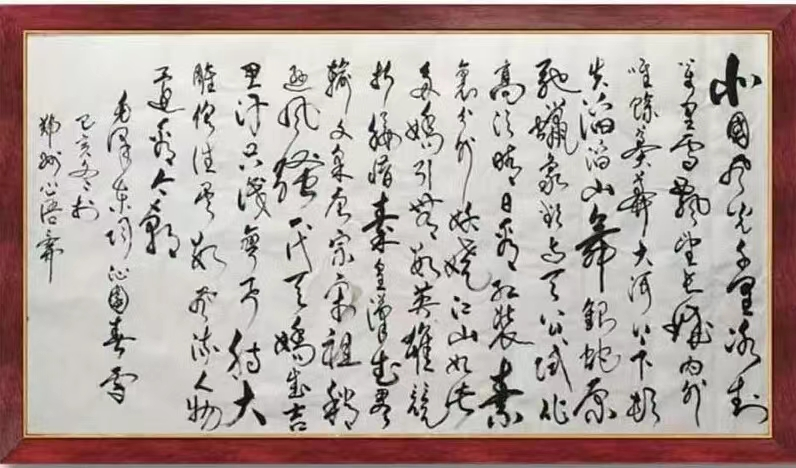 北國风光千里冰封
万里雪飘望长城内外
唯餘莽莽大河上下顿
失滔滔山舞銀蛇原
驰蠟象欲与天公试比
高须晴日看红装素
裹分外妖娆江山如此
多嬌引無数英雄競
折腰惜秦皇汉武略
输文采唐宗宋祖稍
逊风骚一代天嬌成吉
思汗只识弯弓射大
雕俱往矣数风流人物
还看今朝
毛泽东词沁園春雪
己亥冬於
郑州心语斋